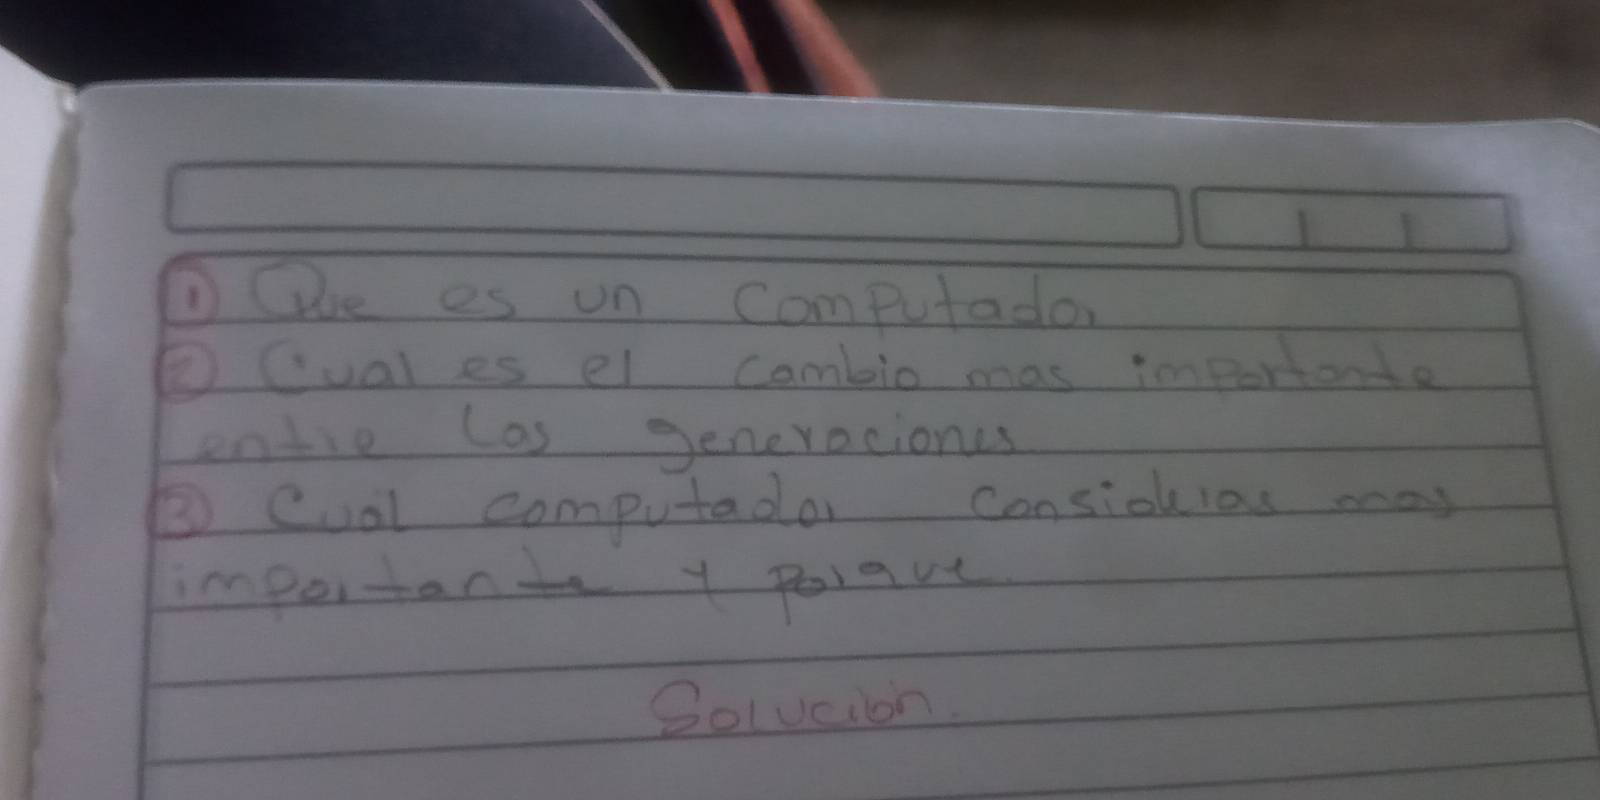 ① Que es un Computador
② Cual es el cambio mas importante
entre las generaciones
③ Cual computador consideras mas
importante y porque.
Solución.